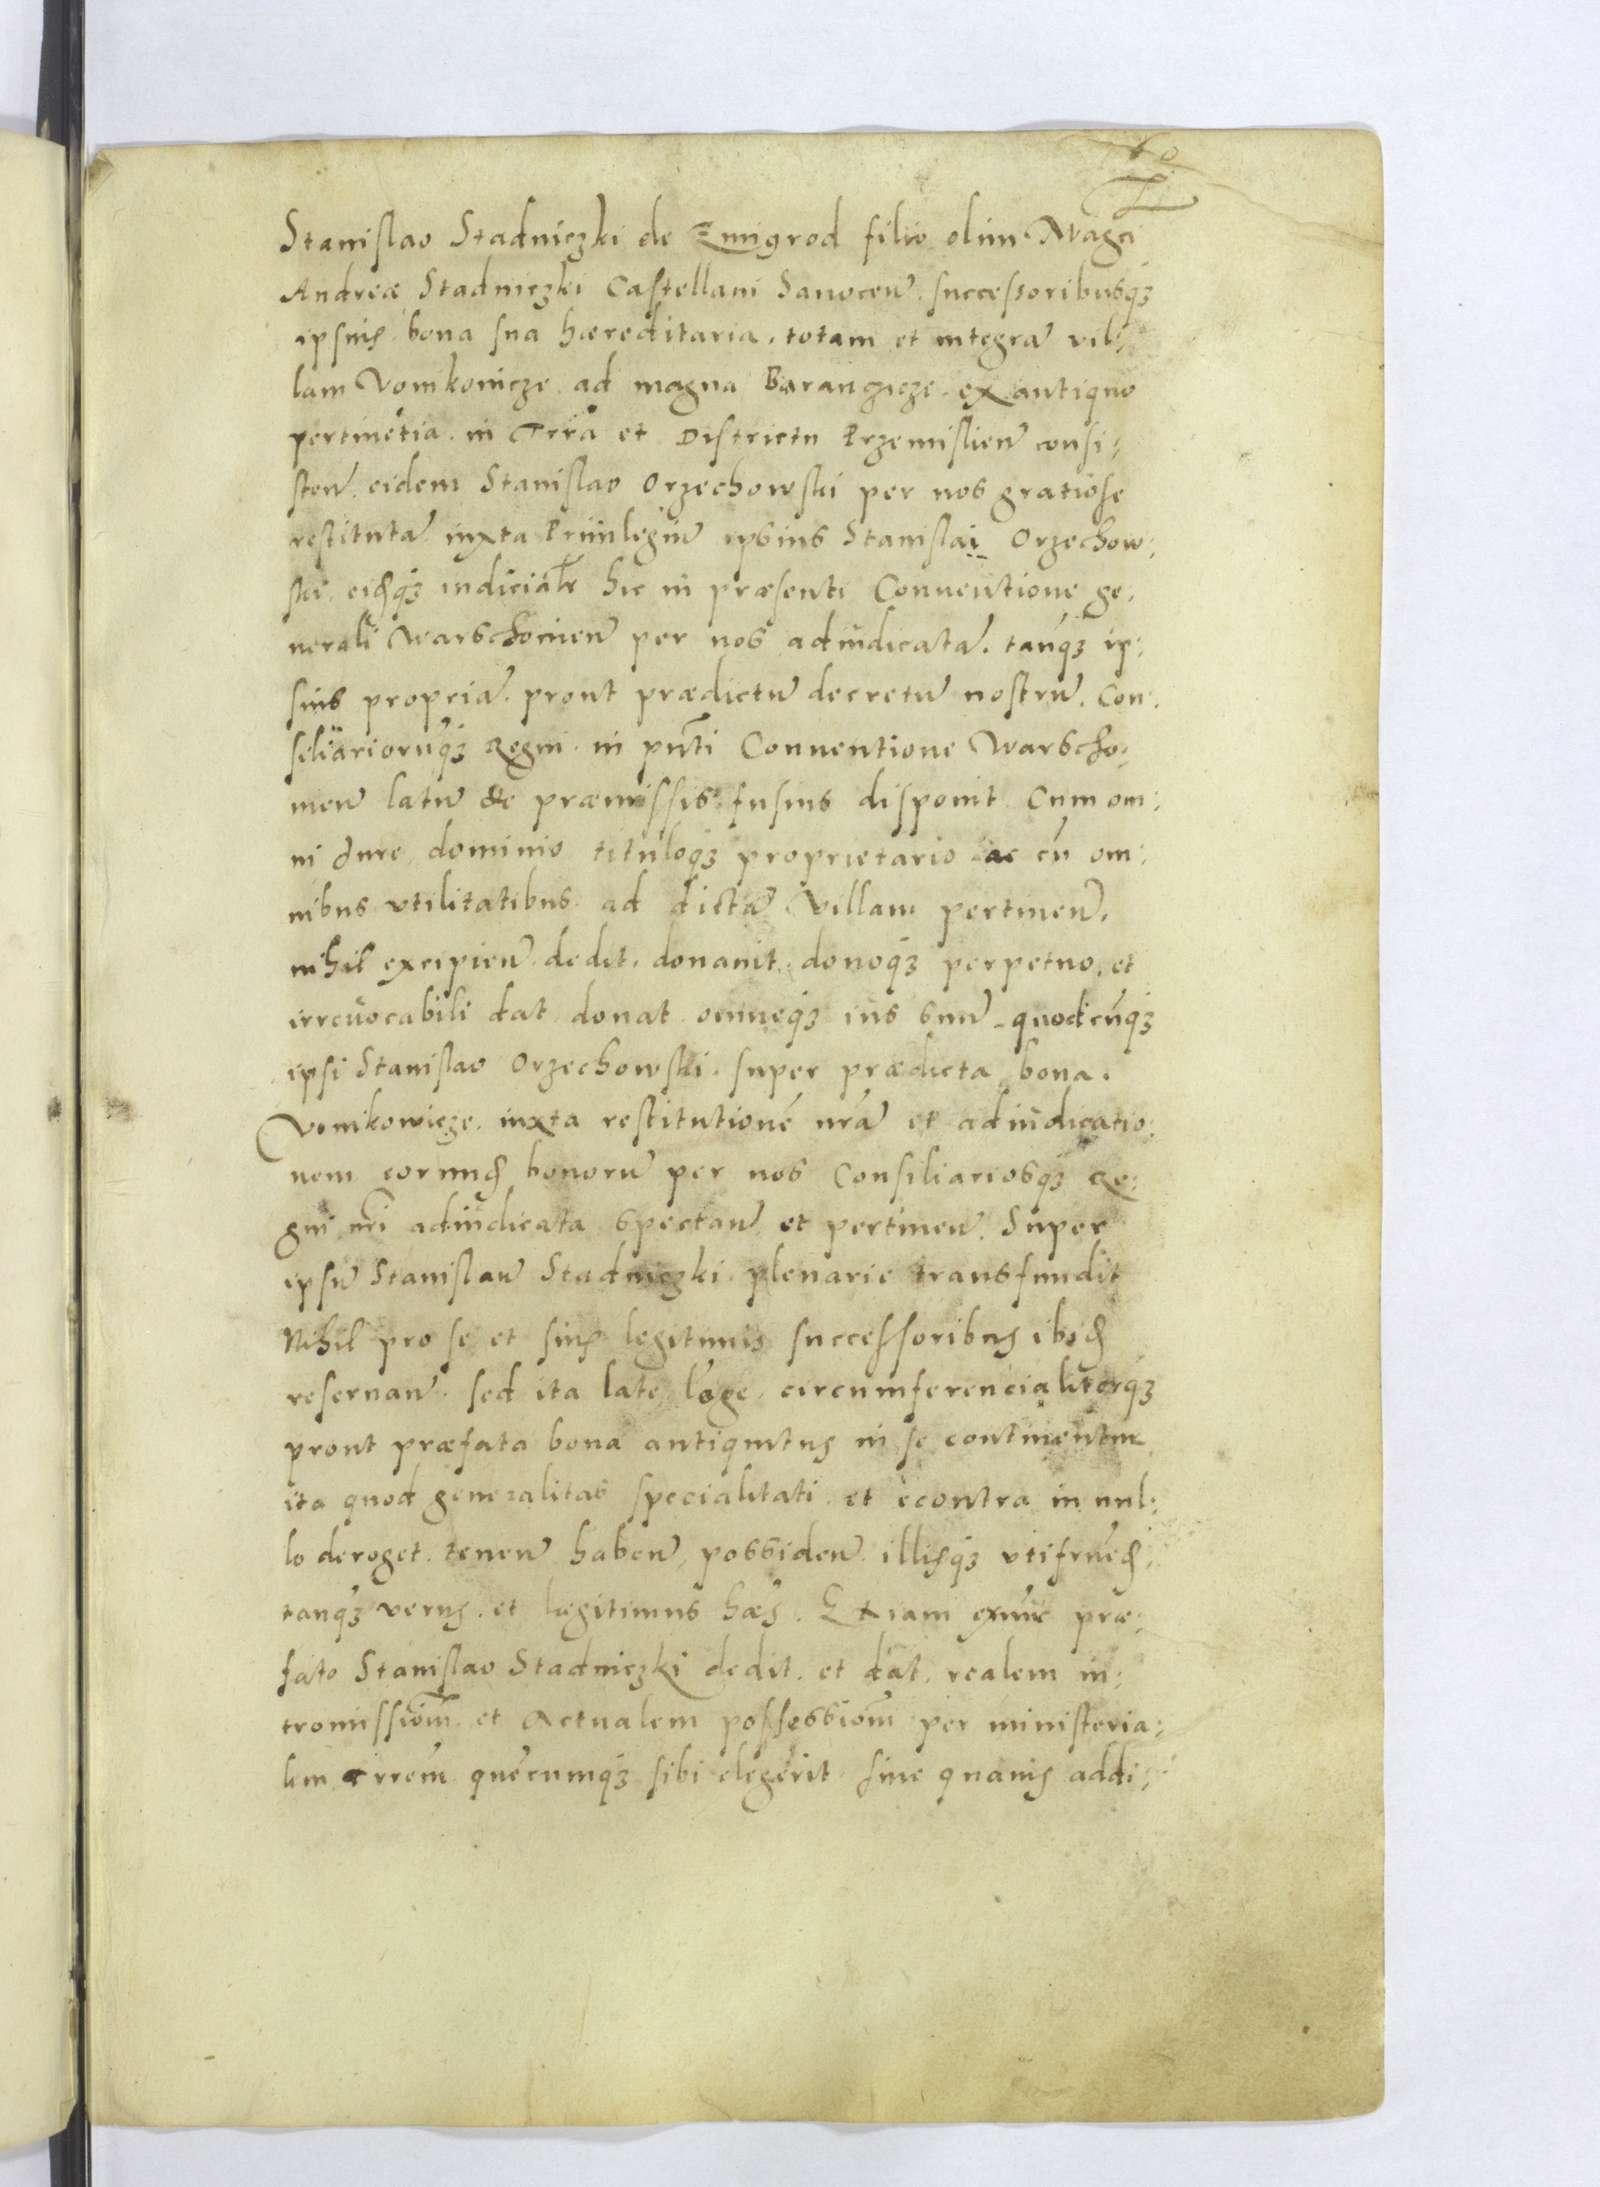 Stanislao Stadniczki de Zmigrod filio olim Magci
Andreæ Stadniczki Castellani Sanoceñ. successoribusq3
ipsius bona sua hæreditaria, totam et integrã vil:
lam Vonikowicze ad magna Baranczicze ex antiquo
pertinẽtia in Trrã et Districtu Przemislieñ consi:
steñ. eidem Stanislao Orzechowski per nos gratiose
restitutã iuxta Priuilegiũ ipsius Stanislai Orzechow:
ski, eidq3 iudicialr hic in præsenti Conuentione ge:
nerali Warschouieñ per nos adiudicatã. tanq3 ip:
sius propriã. prout prædictũ decretũ nostrũ. Con:
siliariorũq3 Regni in pñti Conuentione Warscho:
uieñ latũ de præmissis fusius disponit Cum om:
ni Iure dominio tituloq3 proprietario ac cũ om:
nibus vtilitatibus ad dictã villam pertineñ.
nihil excipieñ. dedit, donauit, donoq3 perpetuo, et
irreuocabili dat donat omneq3 ius suũ quodcũq3
ipsi Stanislao Orzechowski. super prædicta bona.
Vonikowicze. iuxta restitutionẽ nrã et adiudicatio:
nem eorund bonorũ per nos Consiliariosq3 Re:
gni nri adiudicata spectañ et pertineñ. Super
ipsũ Stanislaũ Stadniczki plenarie transfundit
Nihil pro se et suis legitimis successoribus ibid
reseruañ. sed ita late lõge, circumferencialiterq3
prout præfata bona antiquitus in se continentur
ita quod generalitas specialitati et econtra in nul:
lo deroget. teneñ habeñ, possideñ. illisq3 vtifrued
tanq3 verus. et legitimus hæs. Et iam exnũc præ:
fato Stanislao Stadniczki dedit. et dat. realem in:
tromissiom et Actualem possessiom per ministeria:
lem Trrem quẽcumq3 sibi elegerit sine quauis addi: